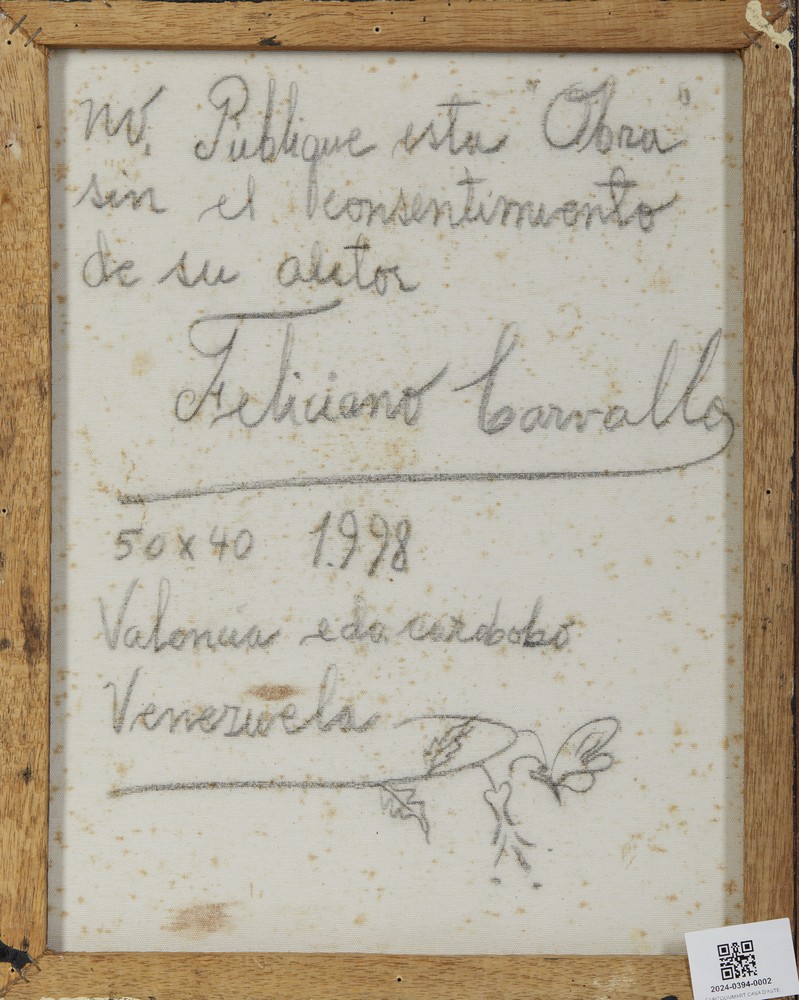 no. Publique esta "Obra"
sin el consentimiento
de su autor
Feliciano Carvallo
50x40 1998
Valencia edo. carabobo
Venezuela
2024-0394-0002